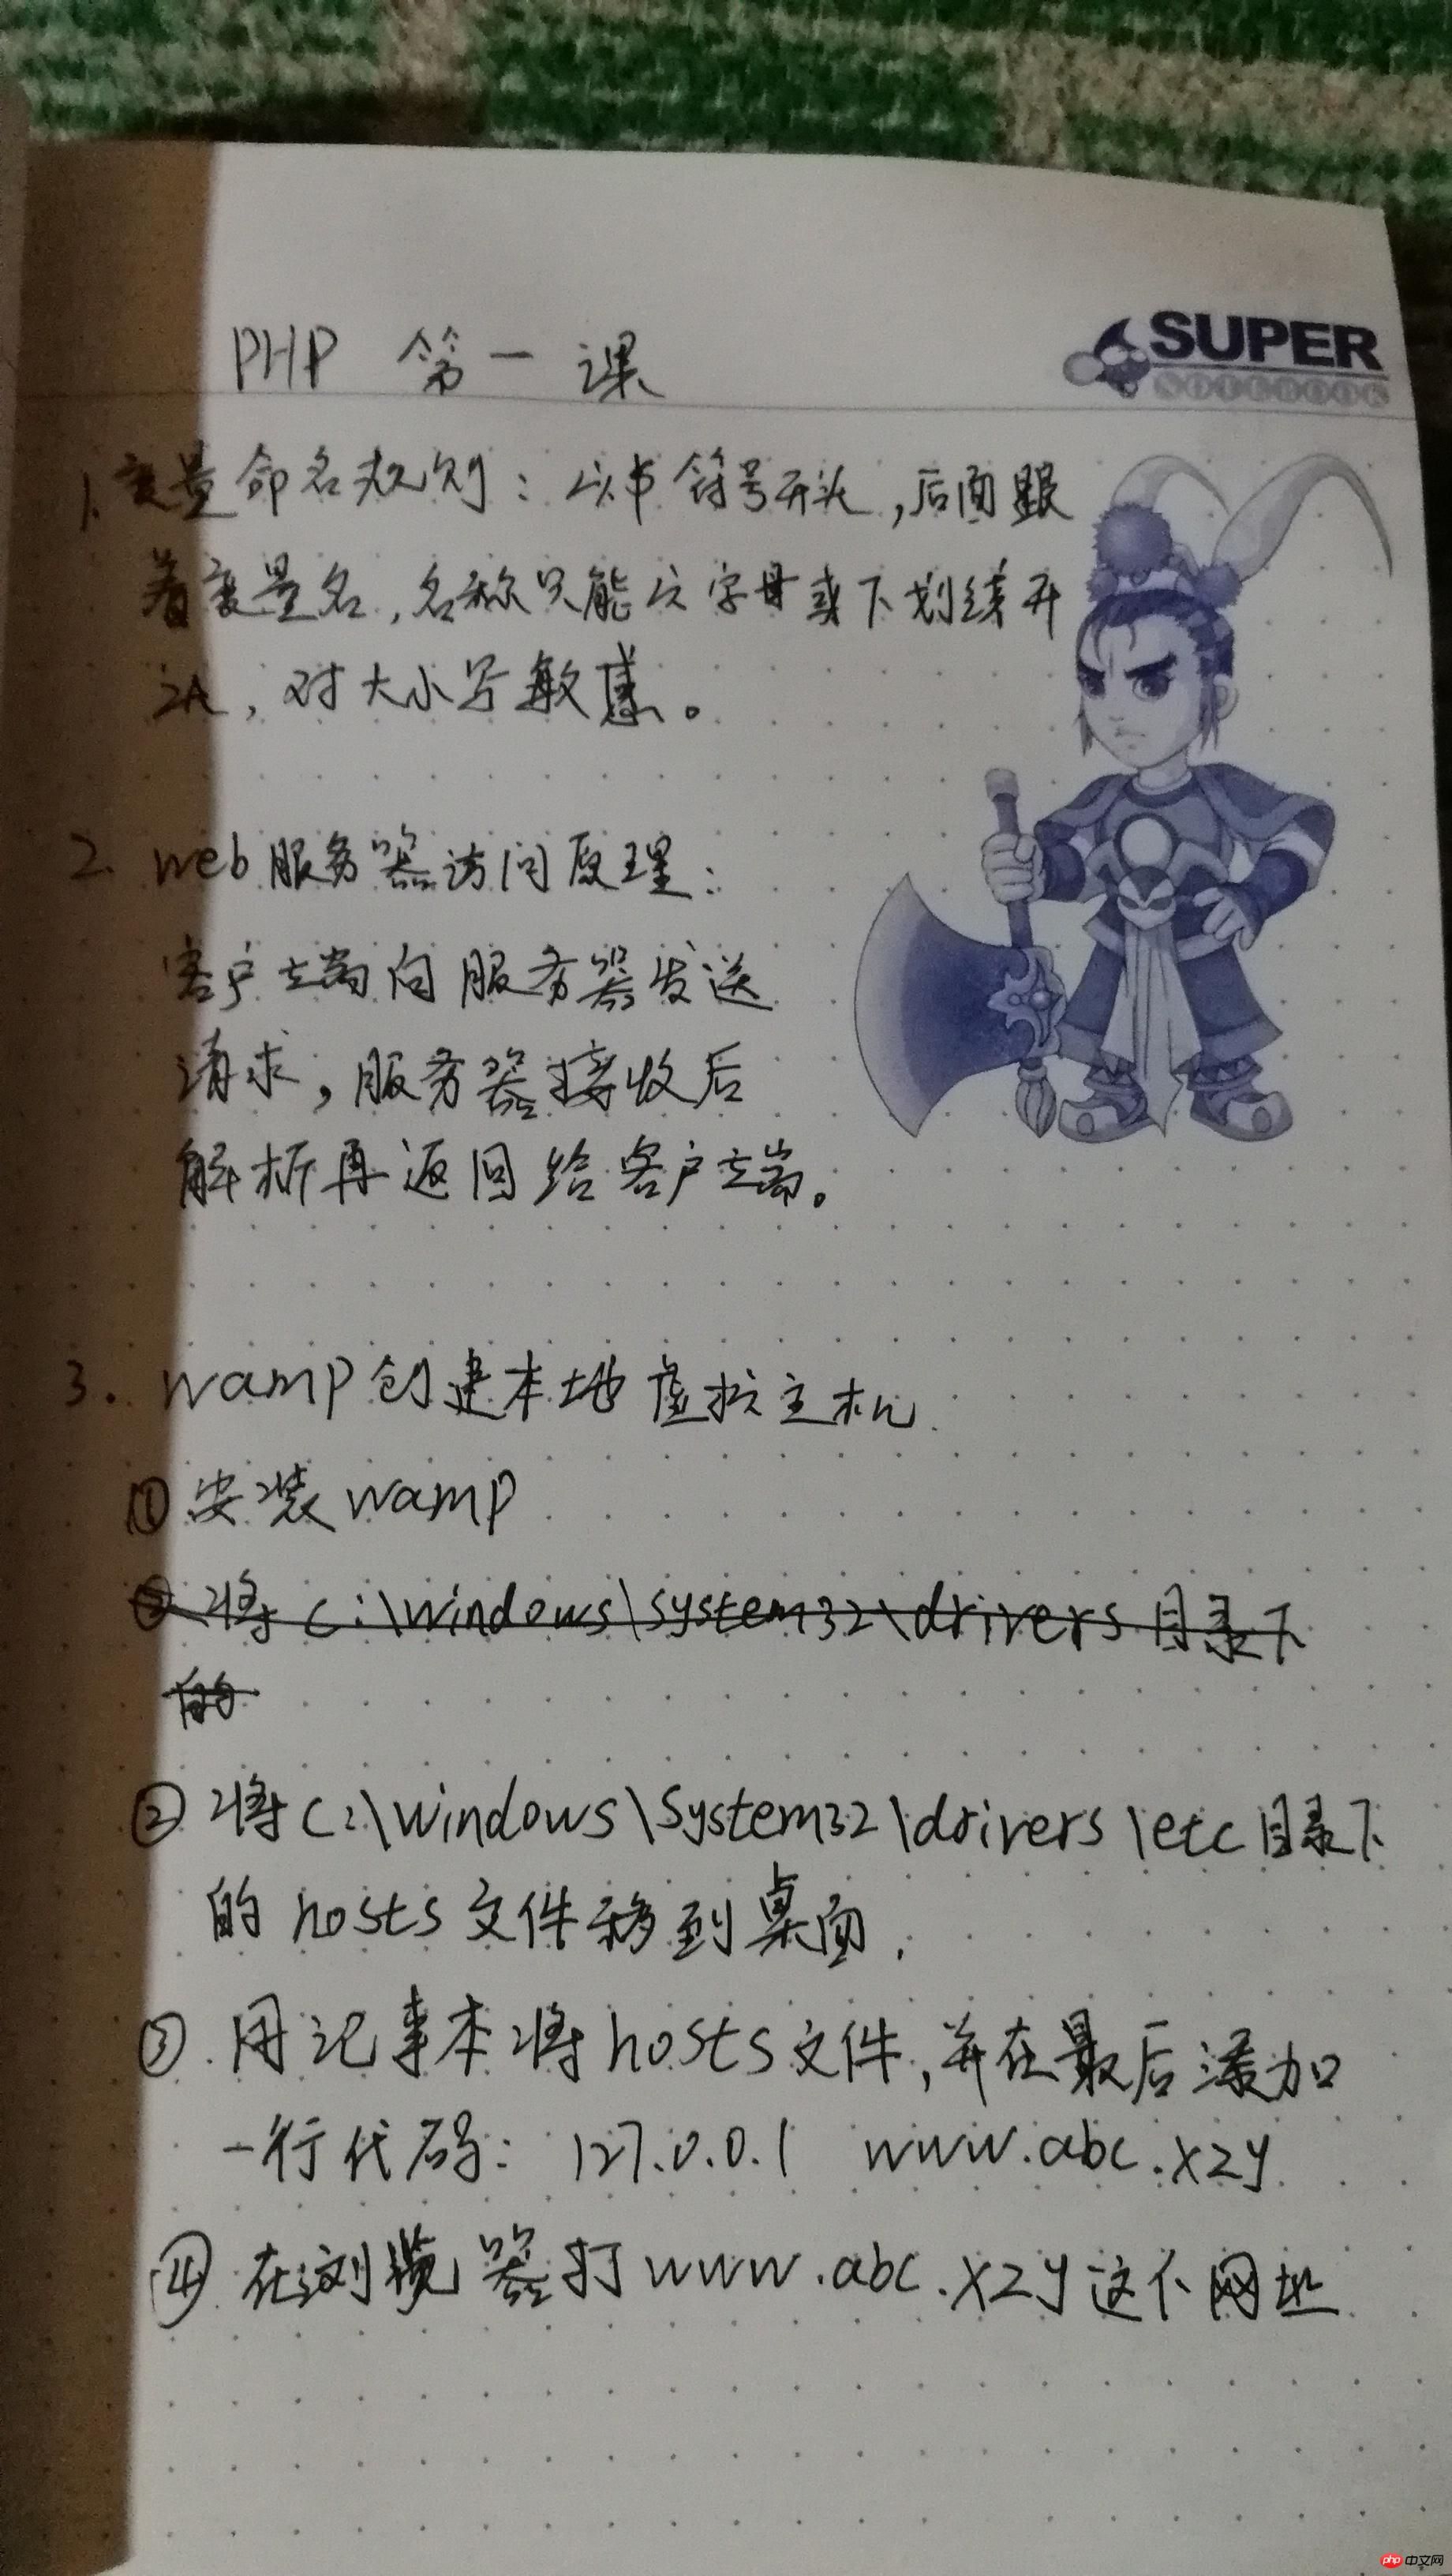 PHP 第一课
SUPER
NOTEBOOK
1. 变量命名规则：以$符号开头，后面跟
着变量名，名称只能以字母或下划线开
头，对大小写敏感。
2. web服务器访问原理：
客户端向服务器发送
请求，服务器接收后
解析再返回给客户端。
3. wamp创建本地虚拟主机.
①安装wamp
②将c:\windows\system32\drivers目录下
的
②将c:\windows\system32\drivers\etc目录下
的hosts文件移到桌面.
③.用记事本将hosts文件，并在最后添加
一行代码：127.0.0.1 www.abc.xzy
④在浏览器打www.abc.xzy这个网址
php 中文网